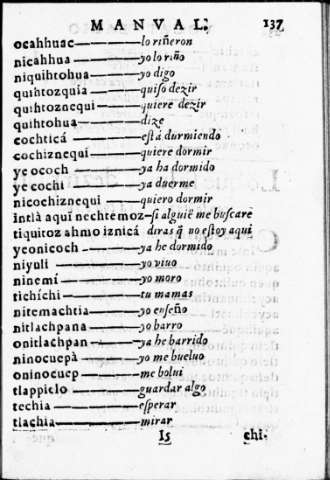 MANVAL. 137
ocahhuac——lo riñeron
nicahhua——yo lo riño
niquihtohua——yo digo
quihtozquia——quiso dezir
quihtoznequi——quiere dezir
quihtohua——dize
cochticá——está durmiendo
cochiznequí——quiere dormir
ye ococh——ya ha dormido
ye cochi——ya duerme
nicochiznequi——quiero dormir
intlà aquí nechtemoz—si alguiē me buscare
tiquitoz ahmo iznicá diras q̃ no estoy aqui
yeonicoch——ya he dormido
niyuli——yo viuo
ninemí——yo moro
tichíchi——tu mamas
nitemachtia——yo enseño
nitlachpana——yo barro
onitlachpan——ya he barrido
ninocuepà——yo me bueluo
oninocuep——me bolui
tlappielo——guardar algo
techia——esperar
tlachia——mirar
I5 chi-